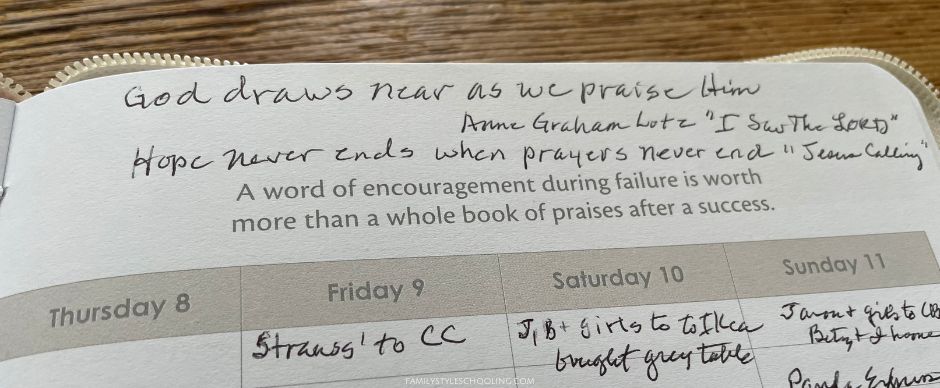 God draws near as we praise Him
Anne Graham Lotz "I Saw The LORD"
Hope never ends when prayers never end "Jesus Calling"
A word of encouragement during failure is worth
more than a whole book of praises after a success.
Thursday 8
Friday 9
Saturday 10
Sunday 11
Strauss' to CC
J, B + girls to to Ikea
bought grey table
Jason + girls to
Betsy + I home
FAMILYSTYLESCHOOLING.COM